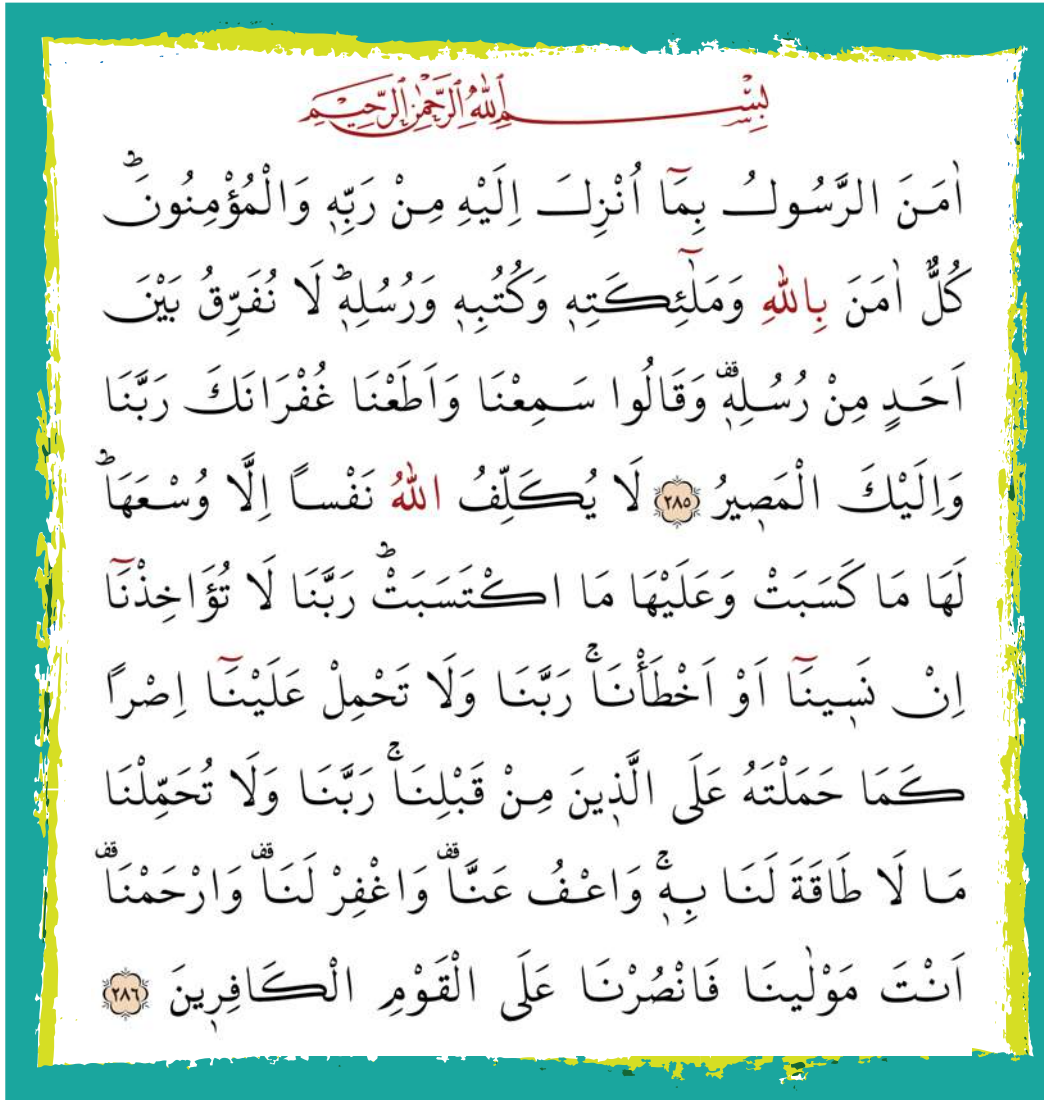 بِسْمِ اللّٰهِ الرَّحْمٰنِ الرَّحِيمِ
اٰمَنَ الرَّسُولُ بِمَٓا اُنْزِلَ اِلَيْهِ مِنْ رَبِّه۪ وَالْمُؤْمِنُونَۜ
كُلٌّ اٰمَنَ بِاللّٰهِ وَمَلٰٓئِكَتِه۪ وَكُتُبِه۪ وَرُسُلِه۪ۜ لَا نُفَرِّقُ بَيْنَ
اَحَدٍ مِنْ رُسُلِه۪۠ وَقَالُوا سَمِعْنَا وَاَطَعْنَا غُفْرَانَكَ رَبَّنَا
وَاِلَيْكَ الْمَص۪يرُ ﴿٢٨٥﴾ لَا يُكَلِّفُ اللّٰهُ نَفْساً اِلَّا وُسْعَهَاۜ
لَهَا مَا كَسَبَتْ وَعَلَيْهَا مَا اكْتَسَبَتْۜ رَبَّنَا لَا تُؤَاخِذْنَٓا
اِنْ نَس۪ينَٓا اَوْ اَخْطَأْنَاۚ رَبَّنَا وَلَا تَحْمِلْ عَلَيْنَٓا اِصْراً
كَمَا حَمَلْتَهُ عَلَى الَّذ۪ينَ مِنْ قَبْلِنَاۚ رَبَّنَا وَلَا تُحَمِّلْنَا
مَا لَا طَاقَةَ لَنَا بِه۪ۚ وَاعْفُ عَنَّا۠ وَاغْفِرْ لَنَا۠ وَارْحَمْنَا۠
اَنْتَ مَوْلٰينَا فَانْصُرْنَا عَلَى الْقَوْمِ الْكَافِر۪ينَ ﴿٢٨٦﴾